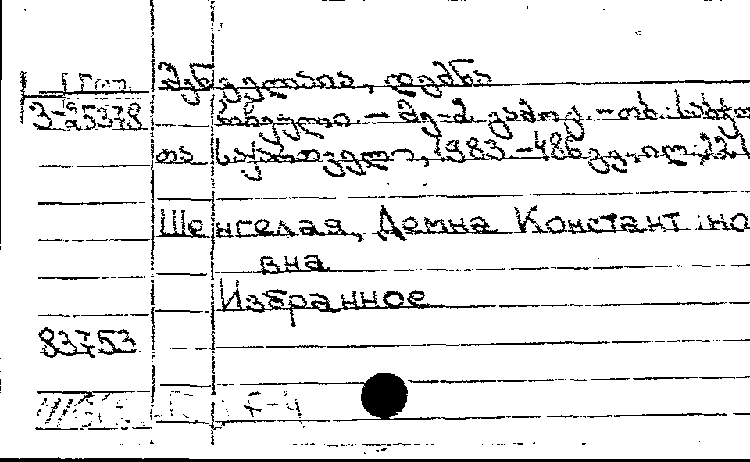 შენგელაია, დემნა
რჩეული. – მე-2 გამოც. – თბ.: საბჭო
თა საქართველო, 1983. – 486 გვ., ილ.; 22
Шенгелая, Демна Констант ино
вна
Избранное
83753